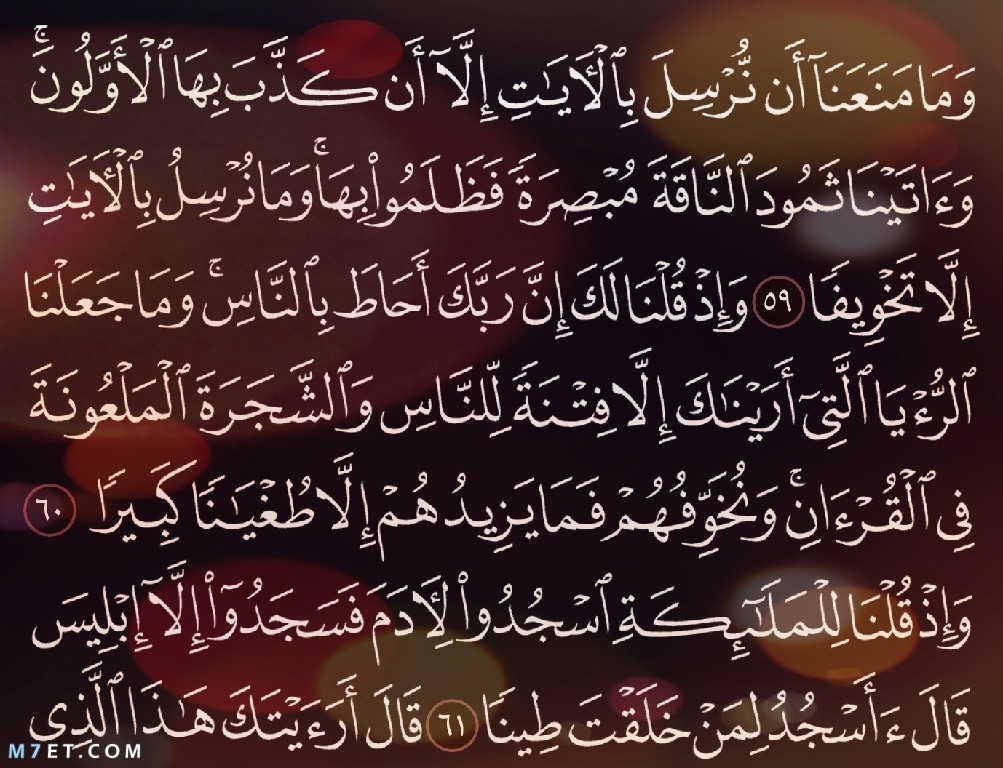 وَمَا مَنَعَنَآ أَن نُّرْسِلَ بِٱلْـَٔايَـٰتِ إِلَّآ أَن كَذَّبَ بِهَا ٱلْأَوَّلُونَ ۚ
وَءَاتَيْنَا ثَمُودَ ٱلنَّاقَةَ مُبْصِرَةً فَظَلَمُوا۟ بِهَا ۚ وَمَا نُرْسِلُ بِٱلْـَٔايَـٰتِ
إِلَّا تَخْوِيفًا ٥٩ وَإِذْ قُلْنَا لَكَ إِنَّ رَبَّكَ أَحَاطَ بِٱلنَّاسِ ۚ وَمَا جَعَلْنَا
ٱلرُّءْيَا ٱلَّتِىٓ أَرَيْنَـٰكَ إِلَّا فِتْنَةً لِّلنَّاسِ وَٱلشَّجَرَةَ ٱلْمَلْعُونَةَ
فِى ٱلْقُرْءَانِ ۚ وَنُخَوِّفُهُمْ فَمَا يَزِيدُهُمْ إِلَّا طُغْيَـٰنًا كَبِيرًا ٦٠
وَإِذْ قُلْنَا لِلْمَلَـٰٓئِكَةِ ٱسْجُدُوا۟ لِـَٔادَمَ فَسَجَدُوٓا۟ إِلَّآ إِبْلِيسَ
قَالَ ءَأَسْجُدُ لِمَنْ خَلَقْتَ طِينًا ٦١ قَالَ أَرَءَيْتَكَ هَـٰذَا ٱلَّذِى
M7ET.COM